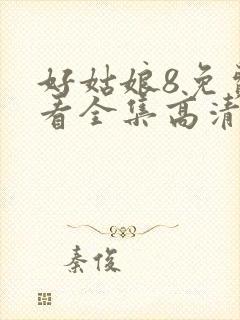 好姑娘8免
看全集高清
秦俊